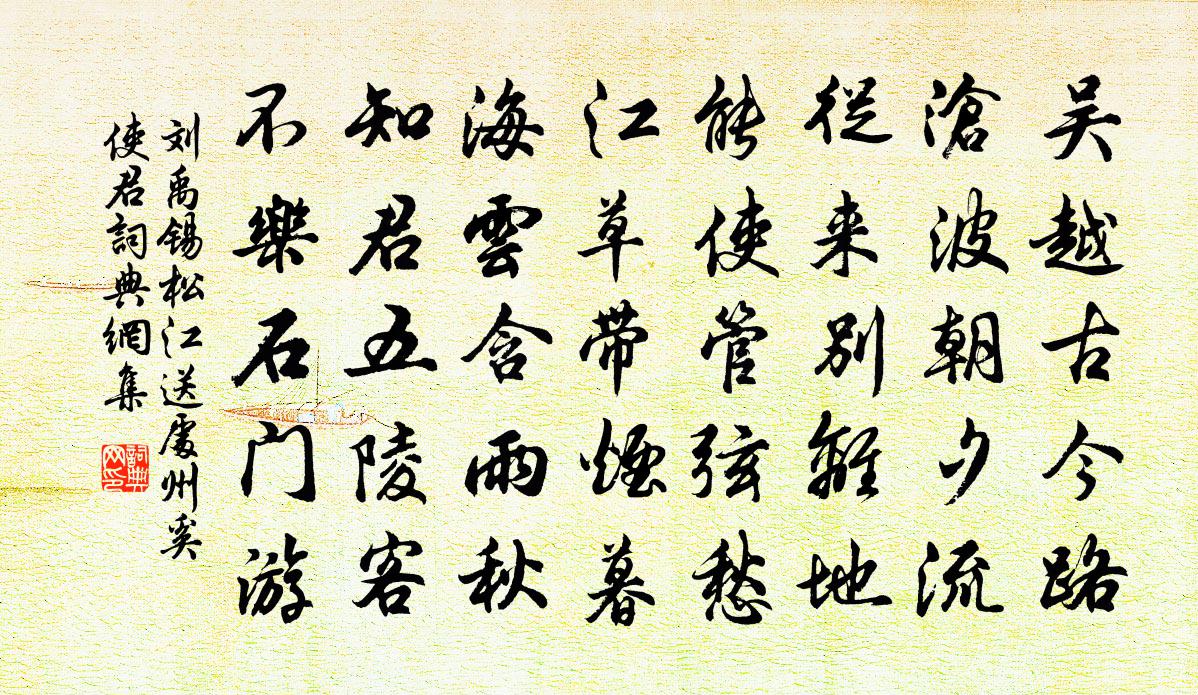 吴越古今路
滄波朝夕流
從来别離地
能使管弦愁
江草带煙暮
海雲含雨秋
知君五陵客
不樂石门游
刘禹锡松江送處州奚
使君詞典網集
詞典
网印